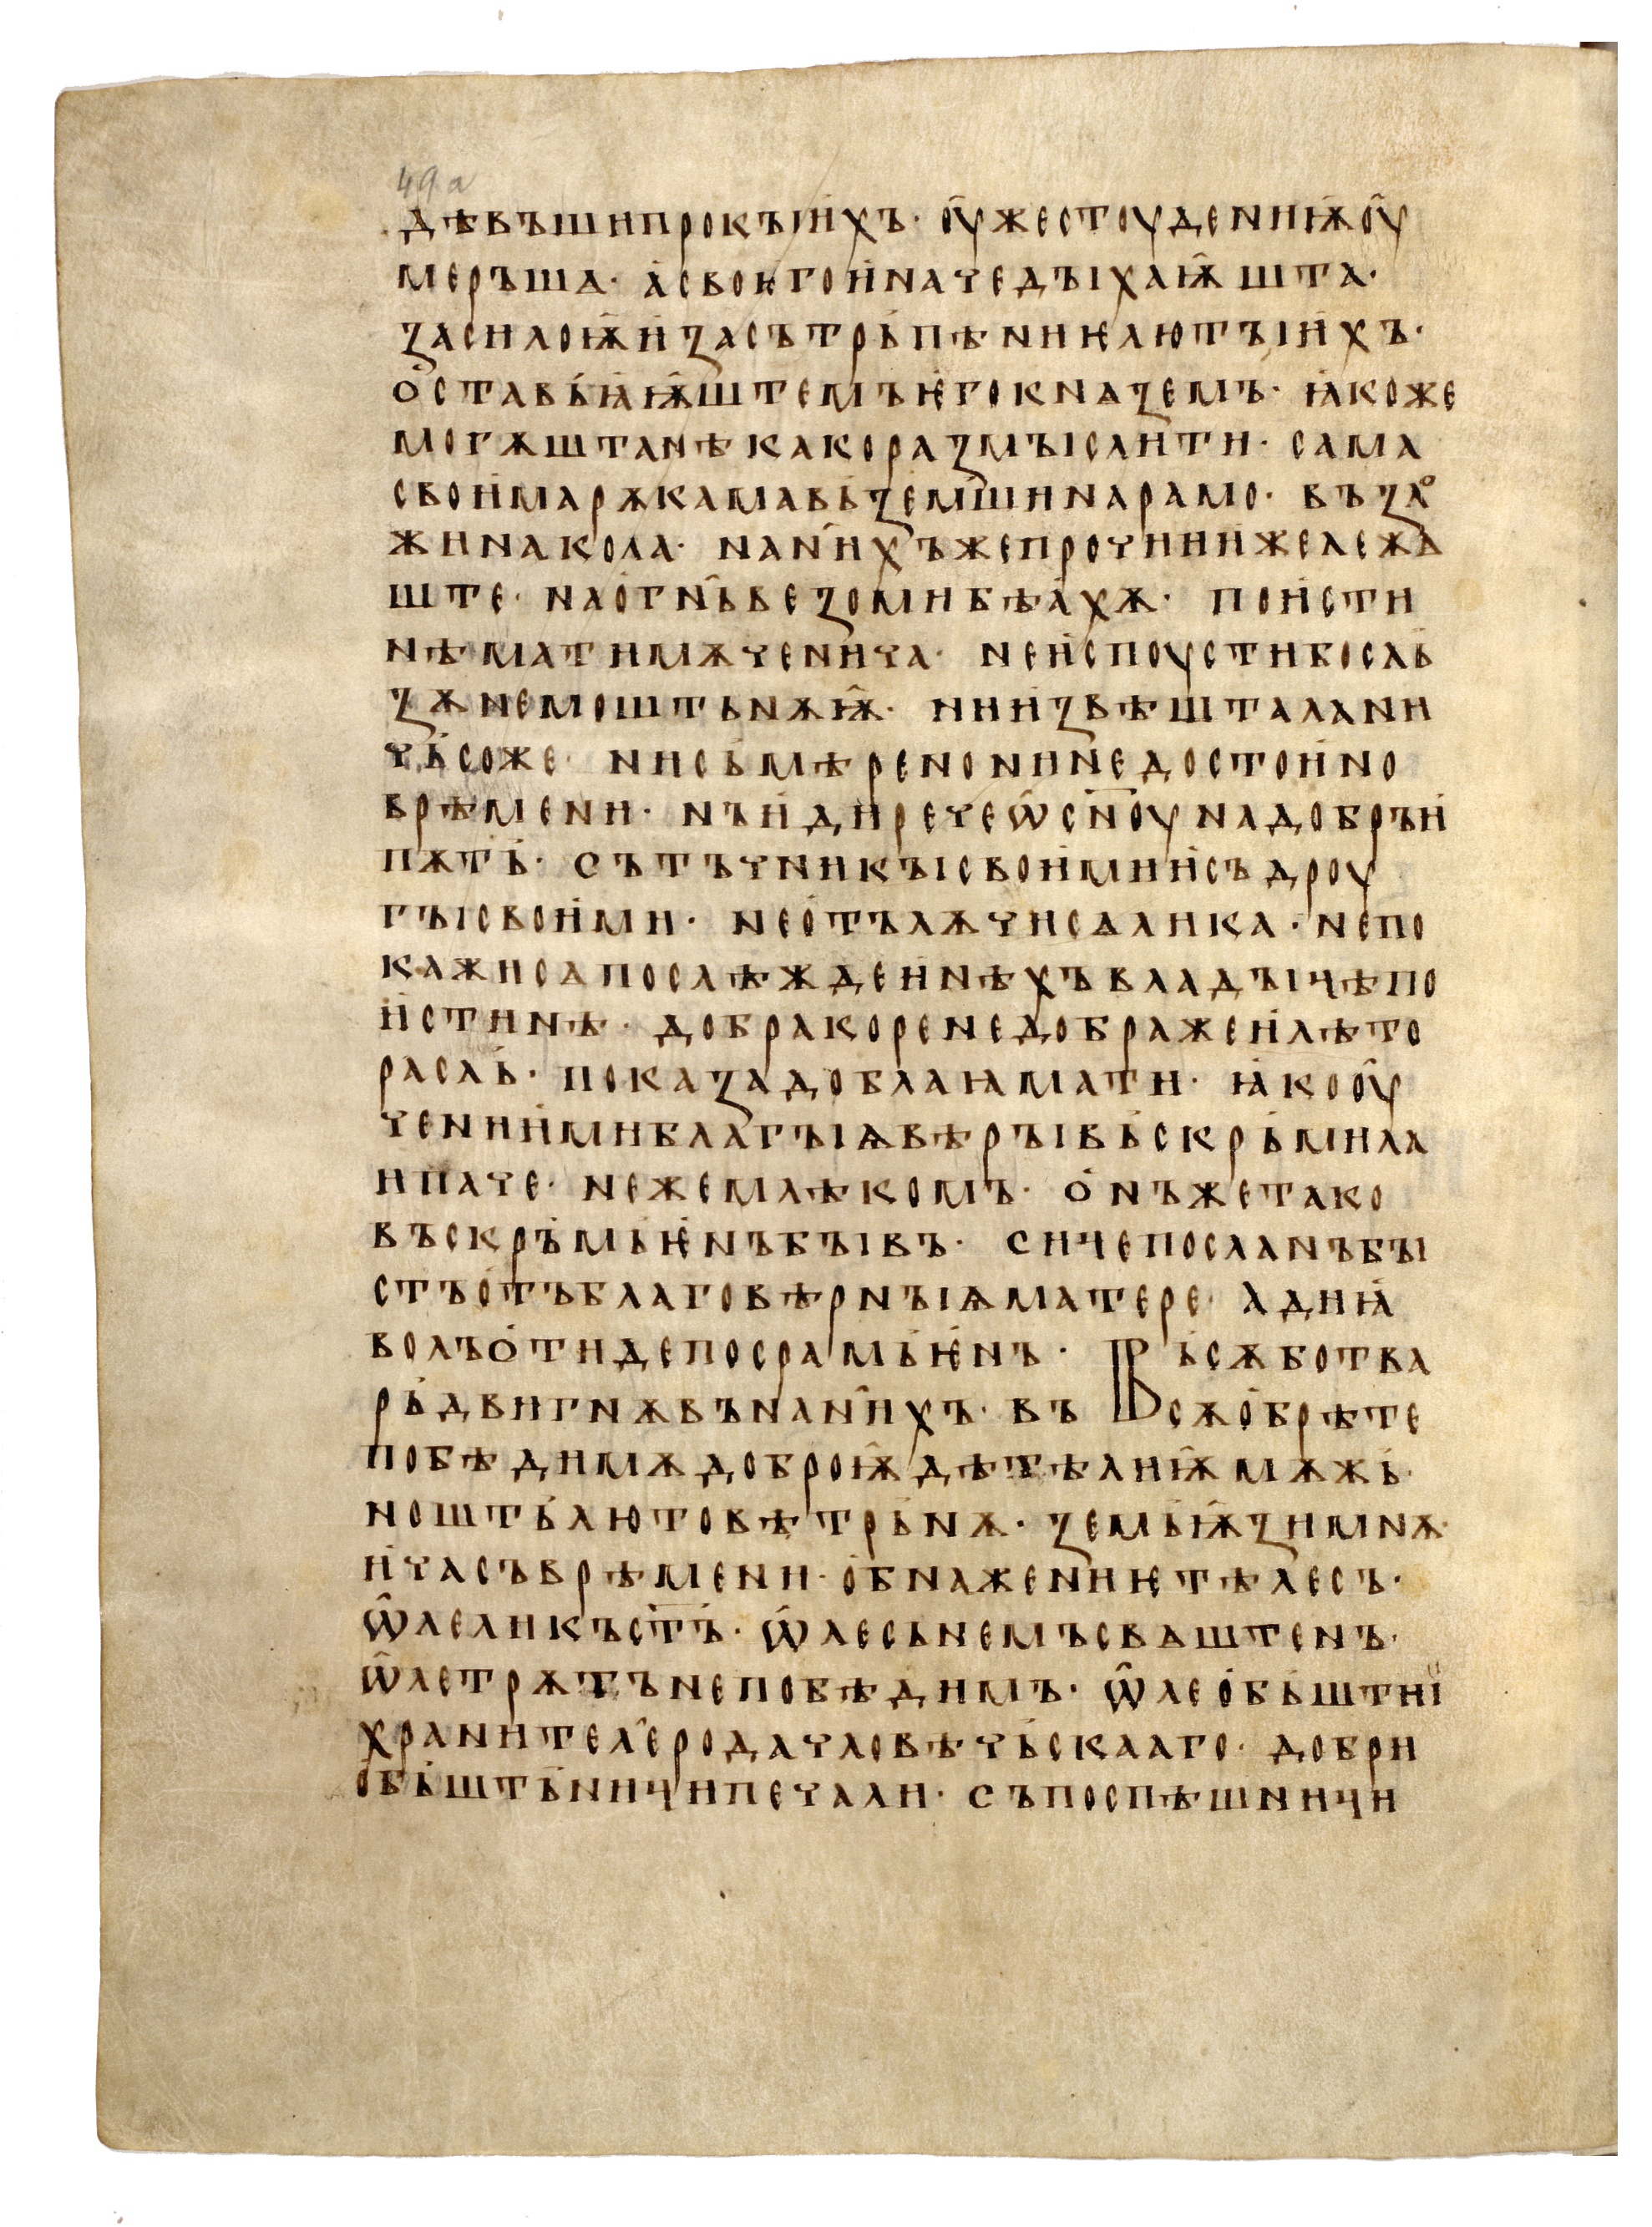 49a
дѣвъши прокъіихъ· оу̑жестоуденикѭоу̑
меръша· а҆своѥгои҆наче дъіхаѭ̑шта·
ꙁасилоѭ̑и҆ꙁасътрь҆пѣниѥлютъіи҆хъ·
о҆ставь҆ꙗ҆ѭ̑штемъѥ҆гокнѧꙁемъ· ꙗ҆коже
могѫштанѣкакораꙁмъісли҆ти· сама
свои҆марѫкамавьꙁемъшинарамо· въꙁло
жинакола· нан҄и҆хъжепрочиии҆жележѧ
ште· нао҆гн҄ьвеꙁомибѣа҆хѫ· пои҆сти
нѣматимѫченича· неи҆споустибосль҆
ꙁѫнемоштьнѫѭ̑· нии҆ꙁвѣшталани
чь҆соже· нисъ҆мѣренонинедостои҆но
врѣмени· нъи҆дирече ѡ҆с҃ноунадобръи҆
пѫть҆· сътъчникъісвои҆мии҆съдроу
гъісвои҆ми· нео҆тълѫчисѧлика· непо
кажисѧпослѣждеи҆нѣхъвладъіцѣпо
и҆стинѣ· добракоренедображеи҆лѣто
расль҆· покаꙁадоблаꙗмати· ꙗ҆кооу̑
чении҆миблагъіѧвѣръівь҆скрь҆мила
ипаче· нежемлѣкомъ· о҆нъжетако
въскръ҆мьѥ҆нъбъівъ· сицепосланъбъі
стъо҆тъблаговѣрнъіѧматере· адиꙗ҆
волъо҆тидепосрамьѥ҆нъ· Вь҆сѫботва
рь҆двигнѫвънан҄и҆хъ· въ сѫо҆брѣте
побѣдимѫдоброѭ̑дѣтѣлиѭ̑мѫжь҆·
ношть҆лютовѣтрь҆нѫ· ꙁемьѭ̑ꙁимнѫ·
и҆часъврѣмени· о҆бнажениѥтѣлесъ·
ѡ҆леликъст҃ъ· ѡ҆лесьнемъсвѧштенъ·
ѡ҆летрѫтънепобѣдимъ· ѡ҆лео҆бь҆штиї
хранител҄еродачловѣчь҆скааго· добри
о҆бь҆штьницииᲆпечали· съпоспѣшници